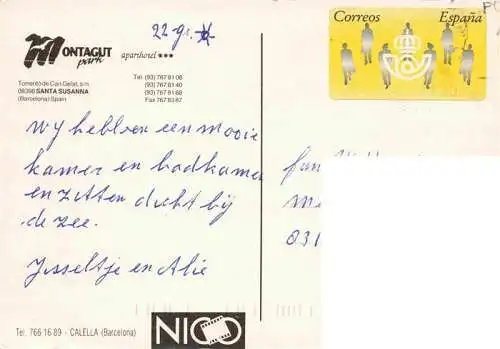 22-9.
MONTAGUT
park aparthotel ***
Torrente de Can Gelat, s/n.
08398 SANTA SUSANNA
(Barcelona) Spain
Tel. (93) 767 81 08
(93) 767 81 40
(93) 767 81 88
Fax 767 83 87
Correos España
Wij hebben een mooie
kamer en badkamer
en zitten dicht bij
de zee.
IJsseltje en Alie
fam
Me
031
Tel. 766 16 89 - CALELLA (Barcelona)
NICO